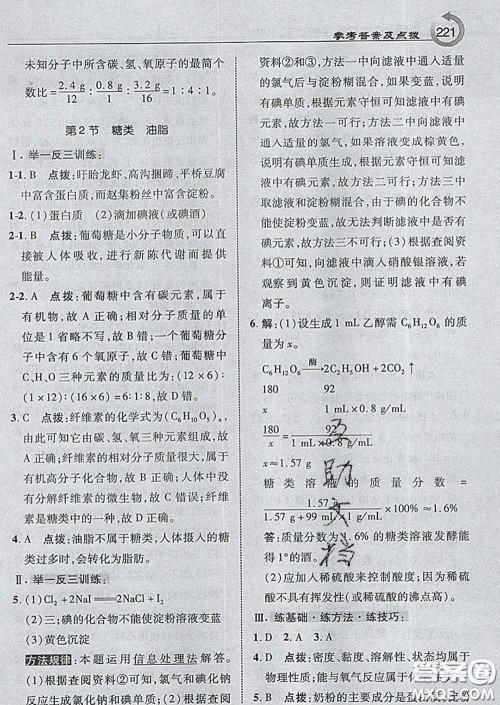 参考答案及点拨 221
未知分子中所含碳、氢、氧原子的最简个
数比 = 2.4 g/12 : 0.8 g/1 : 3.2 g/16 = 1 : 4 : 1
第2节 糖类 油脂
Ⅰ. 举一反三训练:
1-1. B 点拨:盱眙龙虾、高沟捆蹄、平桥豆腐
中富含蛋白质,而赵集粉丝中富含淀粉。
1-2. (1)蛋白质 (2)滴加碘液(或碘酒)
2-1. B 点拨:葡萄糖是小分子物质,可以直
接被人体吸收,进行新陈代谢而提供
能量。
2-2. A 点拨:葡萄糖中含有碳元素,属于
有机物,故 A 正确;相对分子质量的单
位是1省略不写,故 B 错;一个葡萄糖
分子中含有6个氧原子,故 C 错;其中
C、H、O 三种元素的质量比为:(12×6):
(1×12):(16×6)=6:1:8,故 D 错。
3. C 点拨:纤维素的化学式为(C₆H₁₀O₅)ₙ,由
此可知它由碳、氢、氧三种元素组成,属于
有机高分子化合物,人体中没有能分解
纤维素的微生物,故 C 错误。
4. A 点拨:油脂不属于糖类,人体摄入的糖
类过多时,会转化为脂肪。
Ⅱ. 举一反三训练:
5. (1)Cl₂+2NaI══2NaCl+I₂
(2)三 碘的化合物不能使淀粉溶液变蓝
(3)黄色沉淀
方法规律:本题运用信息处理法解答。
(1)根据查阅资料①可知,氯气和碘化
钠反应生成氯化钠和碘单质;(2)根据
资料②和③,方法一中向滤液中通入适量
的氯气后与淀粉糊混合,如果溶液变成蓝
色,根据元素守恒可知滤液中含有碘元
素,故方法一可行;方法二中向滤液中通入
适量的氯气,如果溶液变成棕黄色,
说明生成了碘,根据元素守恒可知滤液
中含有碘元素,故方法二可行;方法三中
取滤液和淀粉糊混合,由于碘的化合物不
能使淀粉变蓝,故无法判断滤液中是否含
有碘元素,方法三不可行;(3)根据查阅资
料④可知,向滤液中滴入硝酸银溶液,若
观察到黄色沉淀,则证明滤液中有碘
离子。
6. 解:(1)设生成 1 mL乙醇需 C₆H₁₂O₆ 的质
量为 x。
C₆H₁₂O₆ ══酶══ 2C₂H₅OH+2CO₂↑
180 92
x 1 mL×0.8 g/mL
180/x = 92/(1 mL×0.8 g/mL)
x≈1.57 g
糖类溶液的质量分数=
1.57 g/(1.57 g+99 mL×1 g/mL)×100%≈1.6%
答:质量分数为1.6%的糖类溶液发酵能
得1°的酒。
(2)应加入稀硫酸来控制酸度,因稀硫酸
不具有挥发性(或稀硫酸的沸点高)。
Ⅲ. 练基础·练方法·练技巧:
1. D 2. A 3. A
4. B 点拨:密度、黏度、溶解性、状态均属于
5. B 点拨:奶粉的主要成分是蛋白质